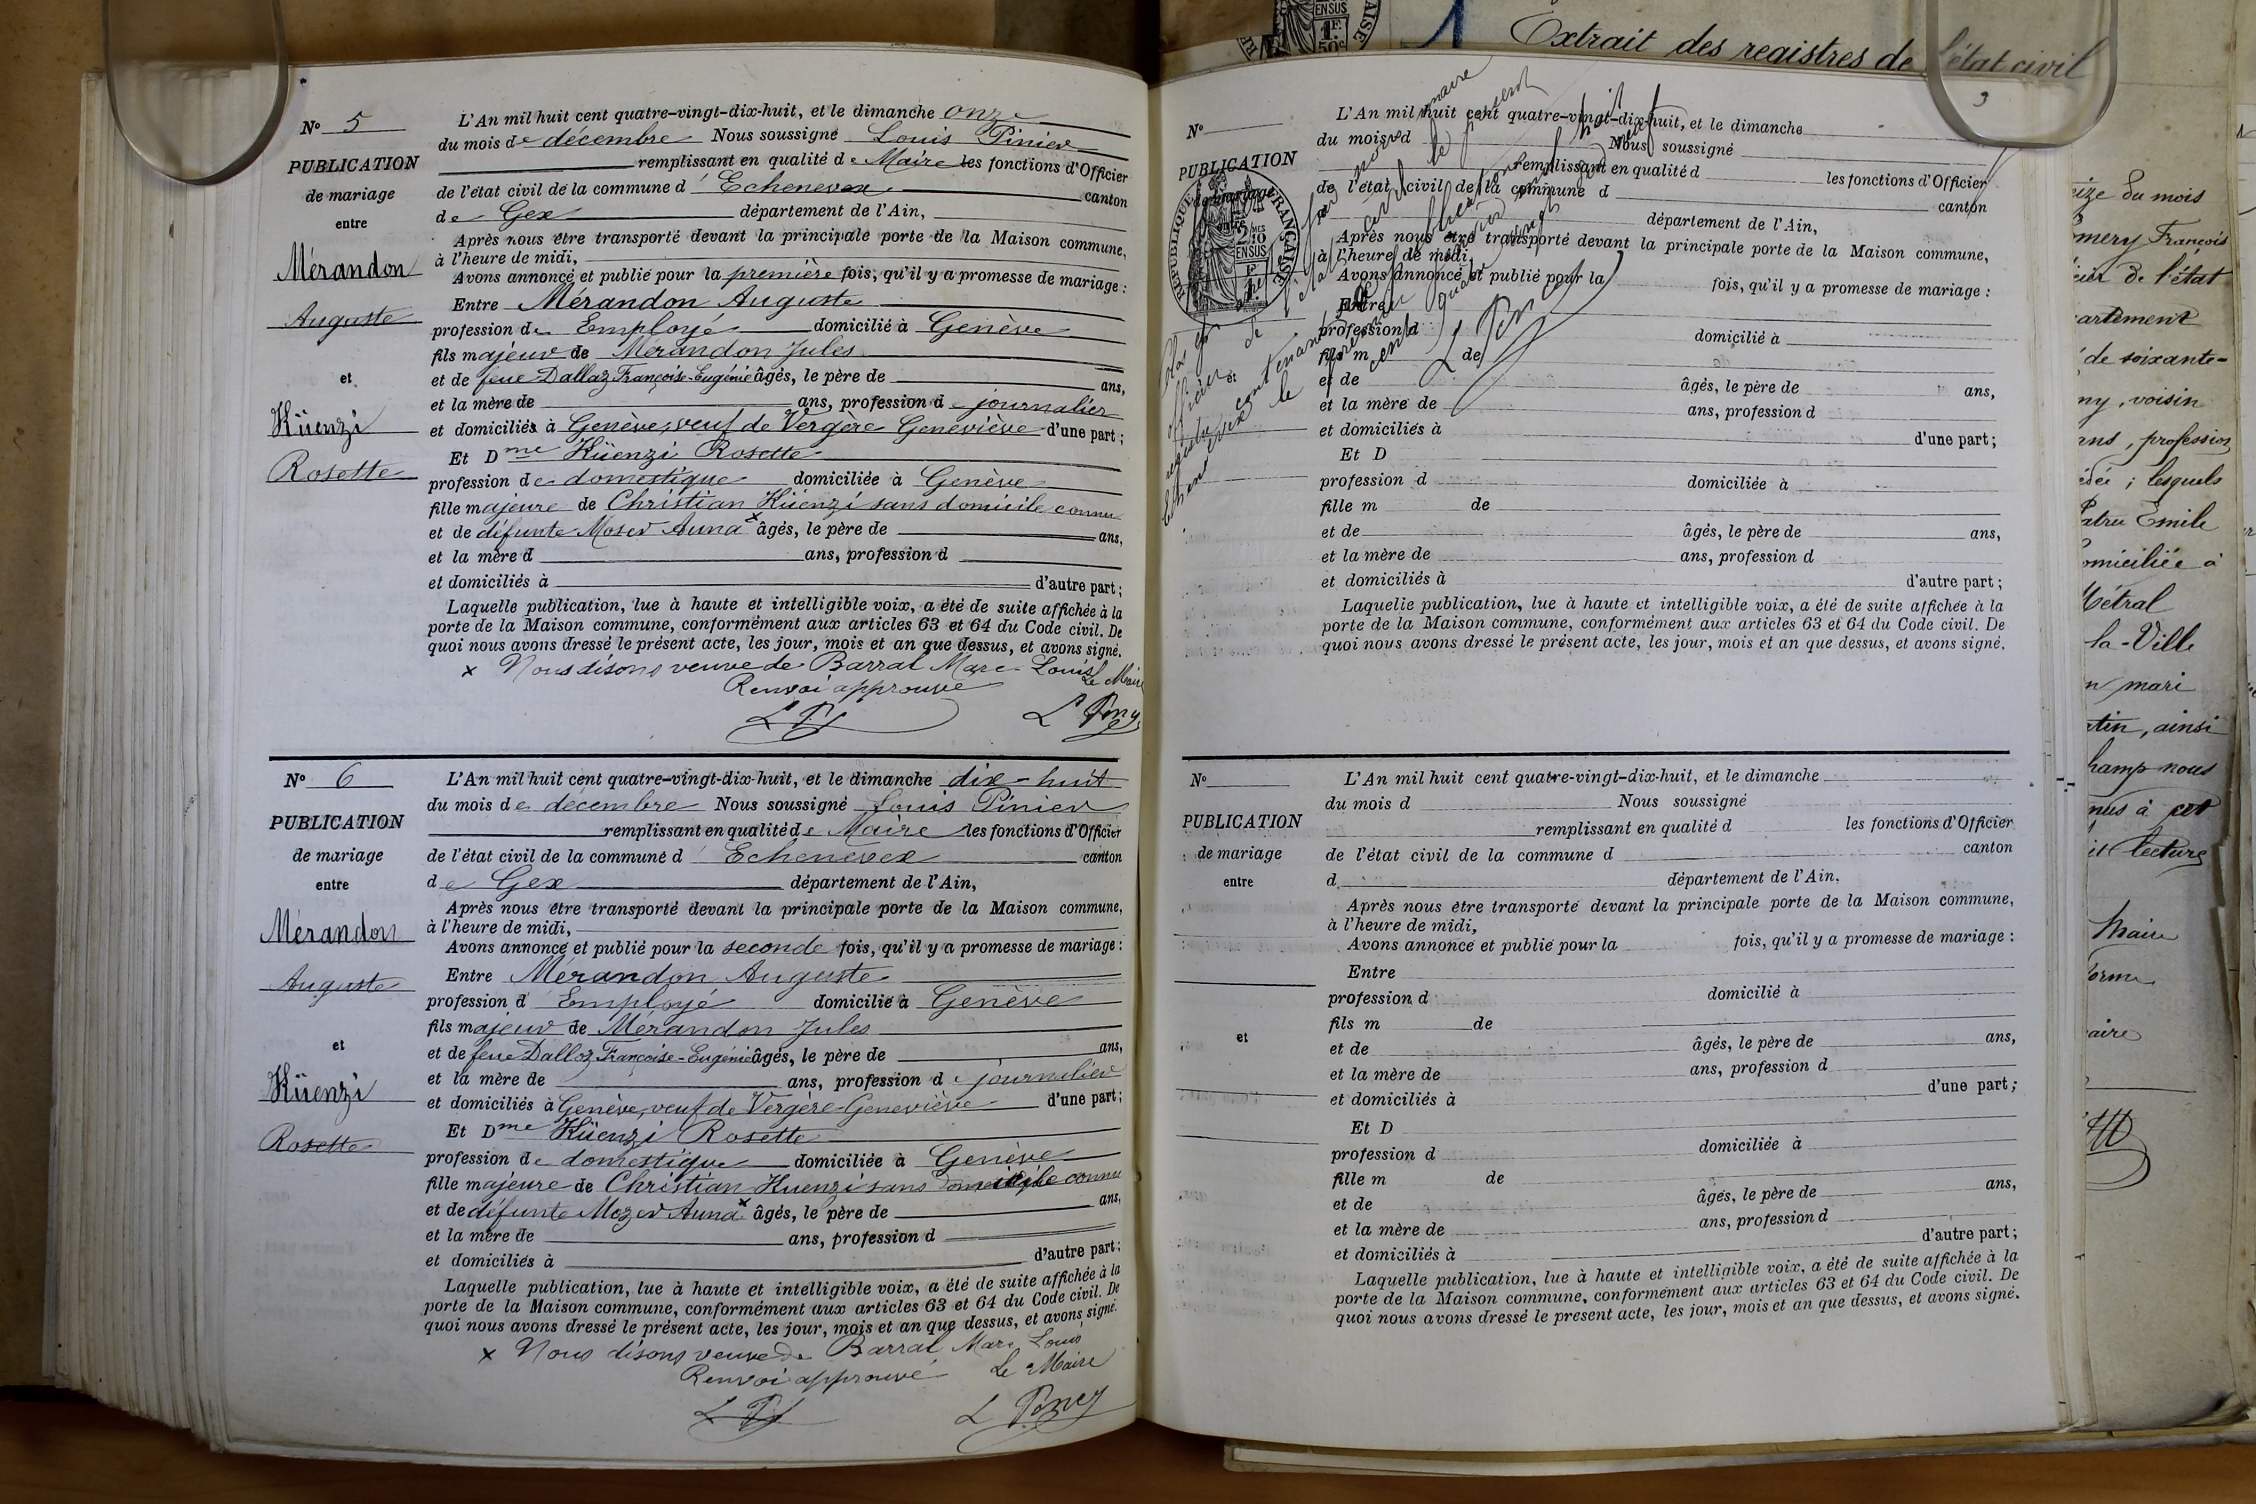 N° 5
PUBLICATION
de mariage
entre
Mérandon
Auguste
et
Küenzi
Rosette
L'An mil huit cent quatre-vingt-dix-huit, et le dimanche onze
du mois de décembre Nous soussigné Louis Pinier
remplissant en qualité de Maire les fonctions d'Officier
de l'état civil de la commune d'Echenevex canton
de Gex département de l'Ain,
Après nous être transporté devant la principale porte de la Maison commune,
à l'heure de midi,
Avons annoncé et publié pour la première fois, qu'il y a promesse de mariage :
Entre Mérandon Auguste
profession de Employé domicilié à Genève
fils majeur de Mérandon Jules
et de feue Dallaz Françoise-Eugénie âgés, le père de ans,
et la mère de ans, profession de journalier
et domiciliés à Genève, veuf de Vergère Geneviève d'une part ;
Et Dme Küenzi Rosette
profession de domestique domiciliée à Genève
fille majeure de Christian Küenzi sans domicile connu
et de défunte Moser Anna x âgés, le père de ans,
et la mère d ans, profession d
et domiciliés à d'autre part ;
Laquelle publication, lue à haute et intelligible voix, a été de suite affichée à la
porte de la Maison commune, conformément aux articles 63 et 64 du Code civil. De
quoi nous avons dressé le présent acte, les jour, mois et an que dessus, et avons signé.
x Nous disons veuve de Barral Marc-Louis Le Maire
Renvoi approuvé
N° 6
PUBLICATION
de mariage
entre
Mérandon
Auguste
et
Küenzi
Rosette
L'An mil huit cent quatre-vingt-dix-huit, et le dimanche dix-huit
du mois de décembre Nous soussigné Louis Pinier
remplissant en qualité de Maire les fonctions d'Officier
de l'état civil de la commune d'Echenevex canton
de Gex département de l'Ain,
Après nous être transporté devant la principale porte de la Maison commune,
à l'heure de midi,
Avons annoncé et publié pour la seconde fois, qu'il y a promesse de mariage :
Entre Mérandon Auguste
profession d Employé domicilié à Genève
fils majeur de Mérandon Jules
et de feue Dalloz Françoise-Eugénie âgés, le père de ans,
et la mère de ans, profession de journalier
et domiciliés à Genève, veuf de Vergère Geneviève d'une part ;
Et Dme Küenzi Rosette
profession de domestique domiciliée à Genève
fille majeure de Christian Kuenzi sans domicile connu
et de défunte Mozer Anna x âgés, le père de ans,
et la mère de ans, profession d
et domiciliés à d'autre part ;
Laquelle publication, lue à haute et intelligible voix, a été de suite affichée à la
porte de la Maison commune, conformément aux articles 63 et 64 du Code civil. De
quoi nous avons dressé le présent acte, les jour, mois et an que dessus, et avons signé.
x Nous disons veuve de Barral Marc Louis
Renvoi approuvé Le Maire
Extrait des registres de l'état civil
N°
PUBLICATION
de mariage
entre
RÉPUBLIQUE FRANÇAISE
L'An mil huit cent quatre-vingt-dix-huit, et le dimanche
du mois d Nous soussigné
remplissant en qualité d les fonctions d'Officier
de l'état civil de la commune d canton
département de l'Ain,
Après nous être transporté devant la principale porte de la Maison commune,
à l'heure de midi,
Avons annoncé et publié pour la fois, qu'il y a promesse de mariage :
Entre
profession d domicilié à
fils m de
et de âgés, le père de ans,
et la mère de ans, profession d
et domiciliés à d'une part ;
Et D
profession d domiciliée à
fille m de
et de âgés, le père de ans,
et la mère de ans, profession d
et domiciliés à d'autre part ;
Laquelle publication, lue à haute et intelligible voix, a été de suite affichée à la
porte de la Maison commune, conformément aux articles 63 et 64 du Code civil. De
quoi nous avons dressé le présent acte, les jour, mois et an que dessus, et avons signé.
N°
PUBLICATION
de mariage
entre
et
L'An mil huit cent quatre-vingt-dix-huit, et le dimanche
du mois d Nous soussigné
remplissant en qualité d les fonctions d'Officier
de l'état civil de la commune d canton
d département de l'Ain,
Après nous être transporté devant la principale porte de la Maison commune,
à l'heure de midi,
Avons annoncé et publié pour la fois, qu'il y a promesse de mariage :
Entre
profession d domicilié à
fils m de
et de âgés, le père de ans,
et la mère de ans, profession d
et domiciliés à d'une part ;
Et D
profession d domiciliée à
fille m de
et de âgés, le père de ans,
et la mère de ans, profession d
et domiciliés à d'autre part ;
Laquelle publication, lue à haute et intelligible voix, a été de suite affichée à la
porte de la Maison commune, conformément aux articles 63 et 64 du Code civil. De
quoi nous avons dressé le présent acte, les jour, mois et an que dessus, et avons signé.
du mois
François
de l'état
de soixante-
ny, voisin
, profession
; lesquels
Emile
à
Métral
la-Ville
mari
, ainsi
nous
à cet
lecture